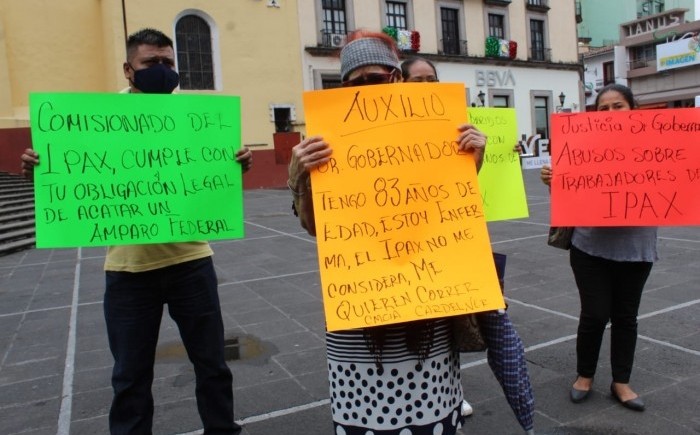 COMISIONADO DEL
IPAX, CUMPLE CON
TU OBLIGACIÓN LEGAL
DE ACATAR UN
AMPARO FEDERAL
AUXILIO
GOBERNADOR
TENGO 83 AÑOS DE
EDAD, ESTOY ENFER
MA, EL IPAX NO ME
CONSIDERA, ME
QUIEREN CORRER
CON
BBVA
JUSTICIA SR GOBER
ABUSOS SOBRE
TRABAJADORES DE
IPAX
IMAGEN